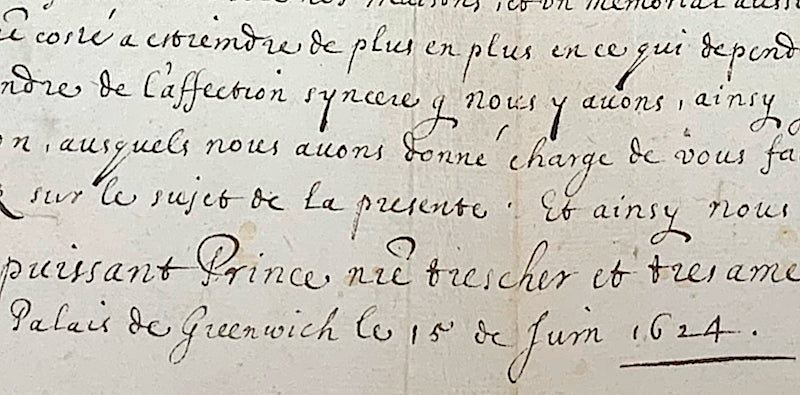 nos maisons, et un memorial aussi
rẽ costé a estreindre de plus en plus en ce qui depend
ndre de l'affection syncere q nous y auons, ainsy
on, ausquels nous auons donné charge de vous fa
sur le sujet de la presente. Et ainsy nous
puissant Prince nrẽ trescher et tresame
Palais de Greenwich le 15 de Juin 1624.